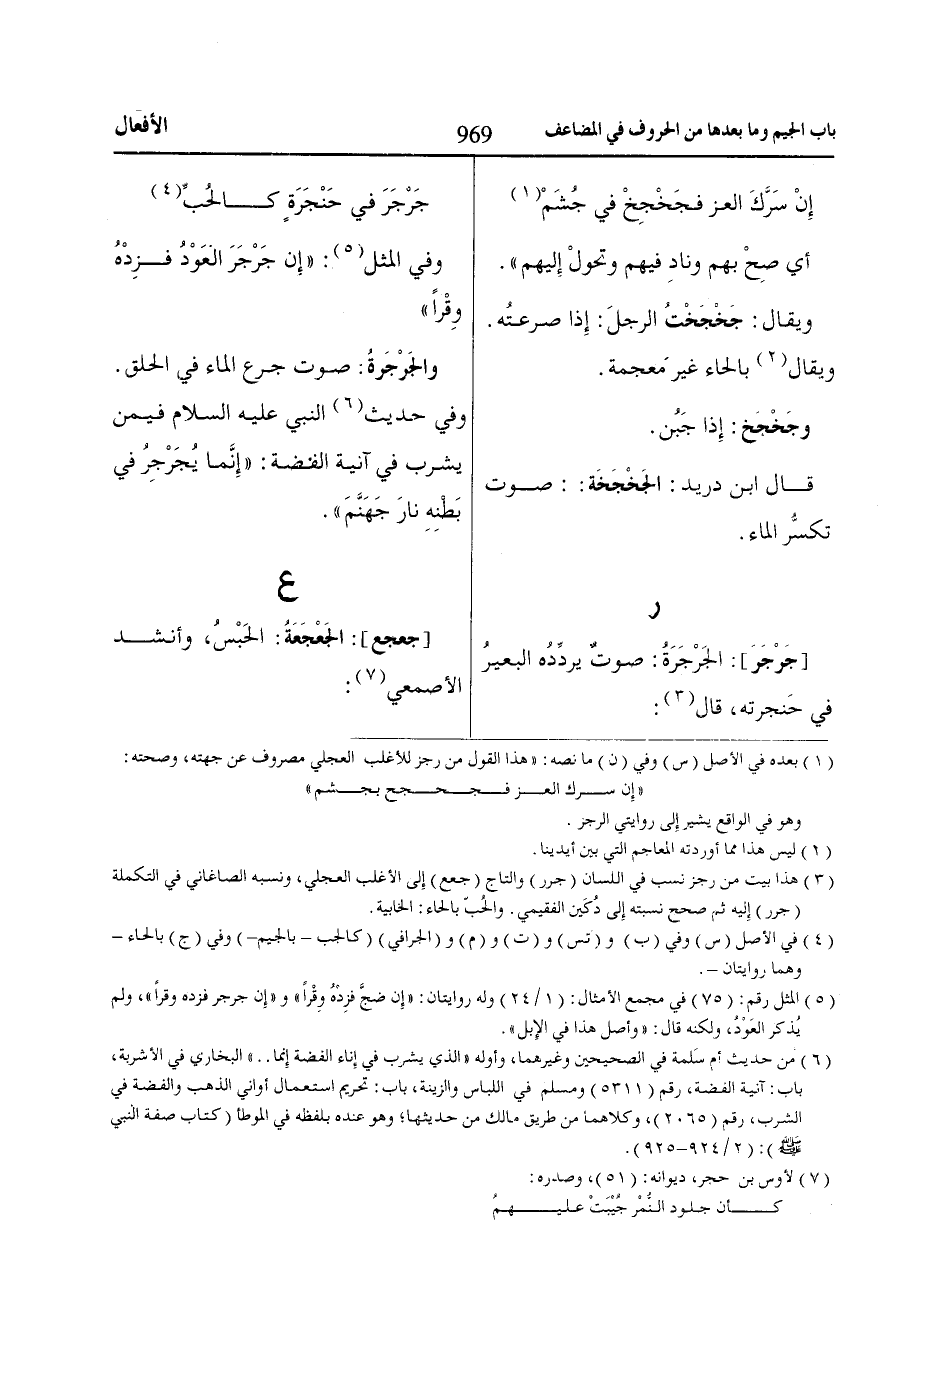 باب الجيم وما بعدها من الحروف في المضاعف 969 الأفعال
إنْ سَرَّكَ العز فـجَخْجِخْ في جُشَمْ(١)
أي صِحْ بهم ونادِ فيهم وتحولْ إليهم».
ويقال: جَخْجَخْتُ الرجلَ: إذا صرعتُه.
ويقال(٢) بالحاء غير مَعجمة.
وجَخْجَخ: إذا جَبُن.
قال ابن دريد: الجَخْجَخَة: : صوت
تكسُّر الماء.
ر
[جَرْجَرَ]: الجَرْجَرَةُ: صوتٌ يردِّدُه البعيرُ
في حَنجرته، قال(٣):
جَرْجَرَ في حَنْجَرَةٍ كالحُبِّ(٤)
وفي المثل(٥): «إن جَرْجَرَ العَوْدُ فزِدْهُ
وِقْراً»
والجَرْجَرةُ: صوت جرع الماء في الحلق.
وفي حديث(٦) النبي عليه السلام فيمن
يشرب في آنية الفضة: «إنَّما يُجَرْجِرُ في
بَطْنِهِ نارَ جَهَنَّمَ».
ع
[جعجع]: الجَعْجَعَةُ: الحَبْسُ، وأنشد
الأصمعي(٧):
(١) بعده في الأصل (س) وفي (ن) ما نصه: «هذا القول من رجز للأغلب العجلي مصروف عن جهته، وصحته:
«إن سرك العز فجحجح بجشم»
وهو في الواقع يشير إلى روايتي الرجز.
(٢) ليس هذا مما أوردته المعاجم التي بين أيدينا.
(٣) هذا بيت من رجز نسب في اللسان (جرر) والتاج (جعع) إلى الأغلب العجلي، ونسبه الصاغاني في التكملة
(جرر) إليه ثم صحح نسبته إلى دُكَين الفقيمي. والحُبّ بالحاء: الخابية.
(٤) في الأصل (س) وفي (ب) و (تس) و (ت) و (م) و (الجرافي) (كالجب – بالجيم–) وفي (ج) بالحاء –
وهما روايتان –.
(٥) المثل رقم: (٧٥) في مجمع الأمثال: (١/٢٤) وله روايتان: «إن ضجَّ فزِدْهُ وِقْراً» و «إن جرجر فزده وقراً»، ولم
يُذكر العَوْدُ، ولكنه قال: «وأصل هذا في الإبل».
(٦) من حديث أم سَلمة في الصحيحين وغيرهما، وأوله «الذي يشرب في إناء الفضة إنما..» البخاري في الأشربة،
باب: آنية الفضة، رقم (٥٣١١) ومسلم في اللباس والزينة، باب: تحريم استعمال أواني الذهب والفضة في
الشرب، رقم (٢٠٦٥)، وكلاهما من طريق مالك من حديثها؛ وهو عنده بلفظه في الموطأ (كتاب صفة النبي
ﷺ): (٢/٩٢٤–٩٢٥).
(٧) لأوس بن حجر، ديوانه: (٥١)، وصدره:
كأن جلود النُّمْر جُيِّبَتْ عليهمُ